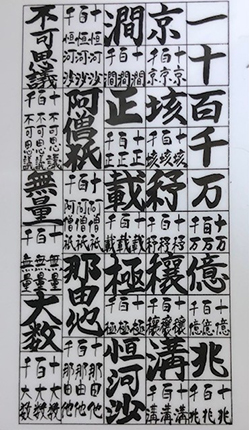 一
十
百
千
万
十万
百万
千万
億
十億
百億
千億
兆
十兆
百兆
千兆
京
十京
百京
千京
垓
十垓
百垓
千垓
秄
十秄
百秄
千秄
穰
十穰
百穰
千穰
溝
十溝
百溝
千溝
澗
十澗
百澗
千澗
正
十正
百正
千正
載
十載
百載
千載
極
十極
百極
千極
恒河沙
十恒河沙
百恒河沙
千恒河沙
阿僧祇
十阿僧祇
百阿僧祇
千阿僧祇
那由他
十那由他
百那由他
千那由他
不可思議
十不可思議
百不可思議
千不可思議
無量
十無量
百無量
千無量
大数
十大数
百大数
千大数